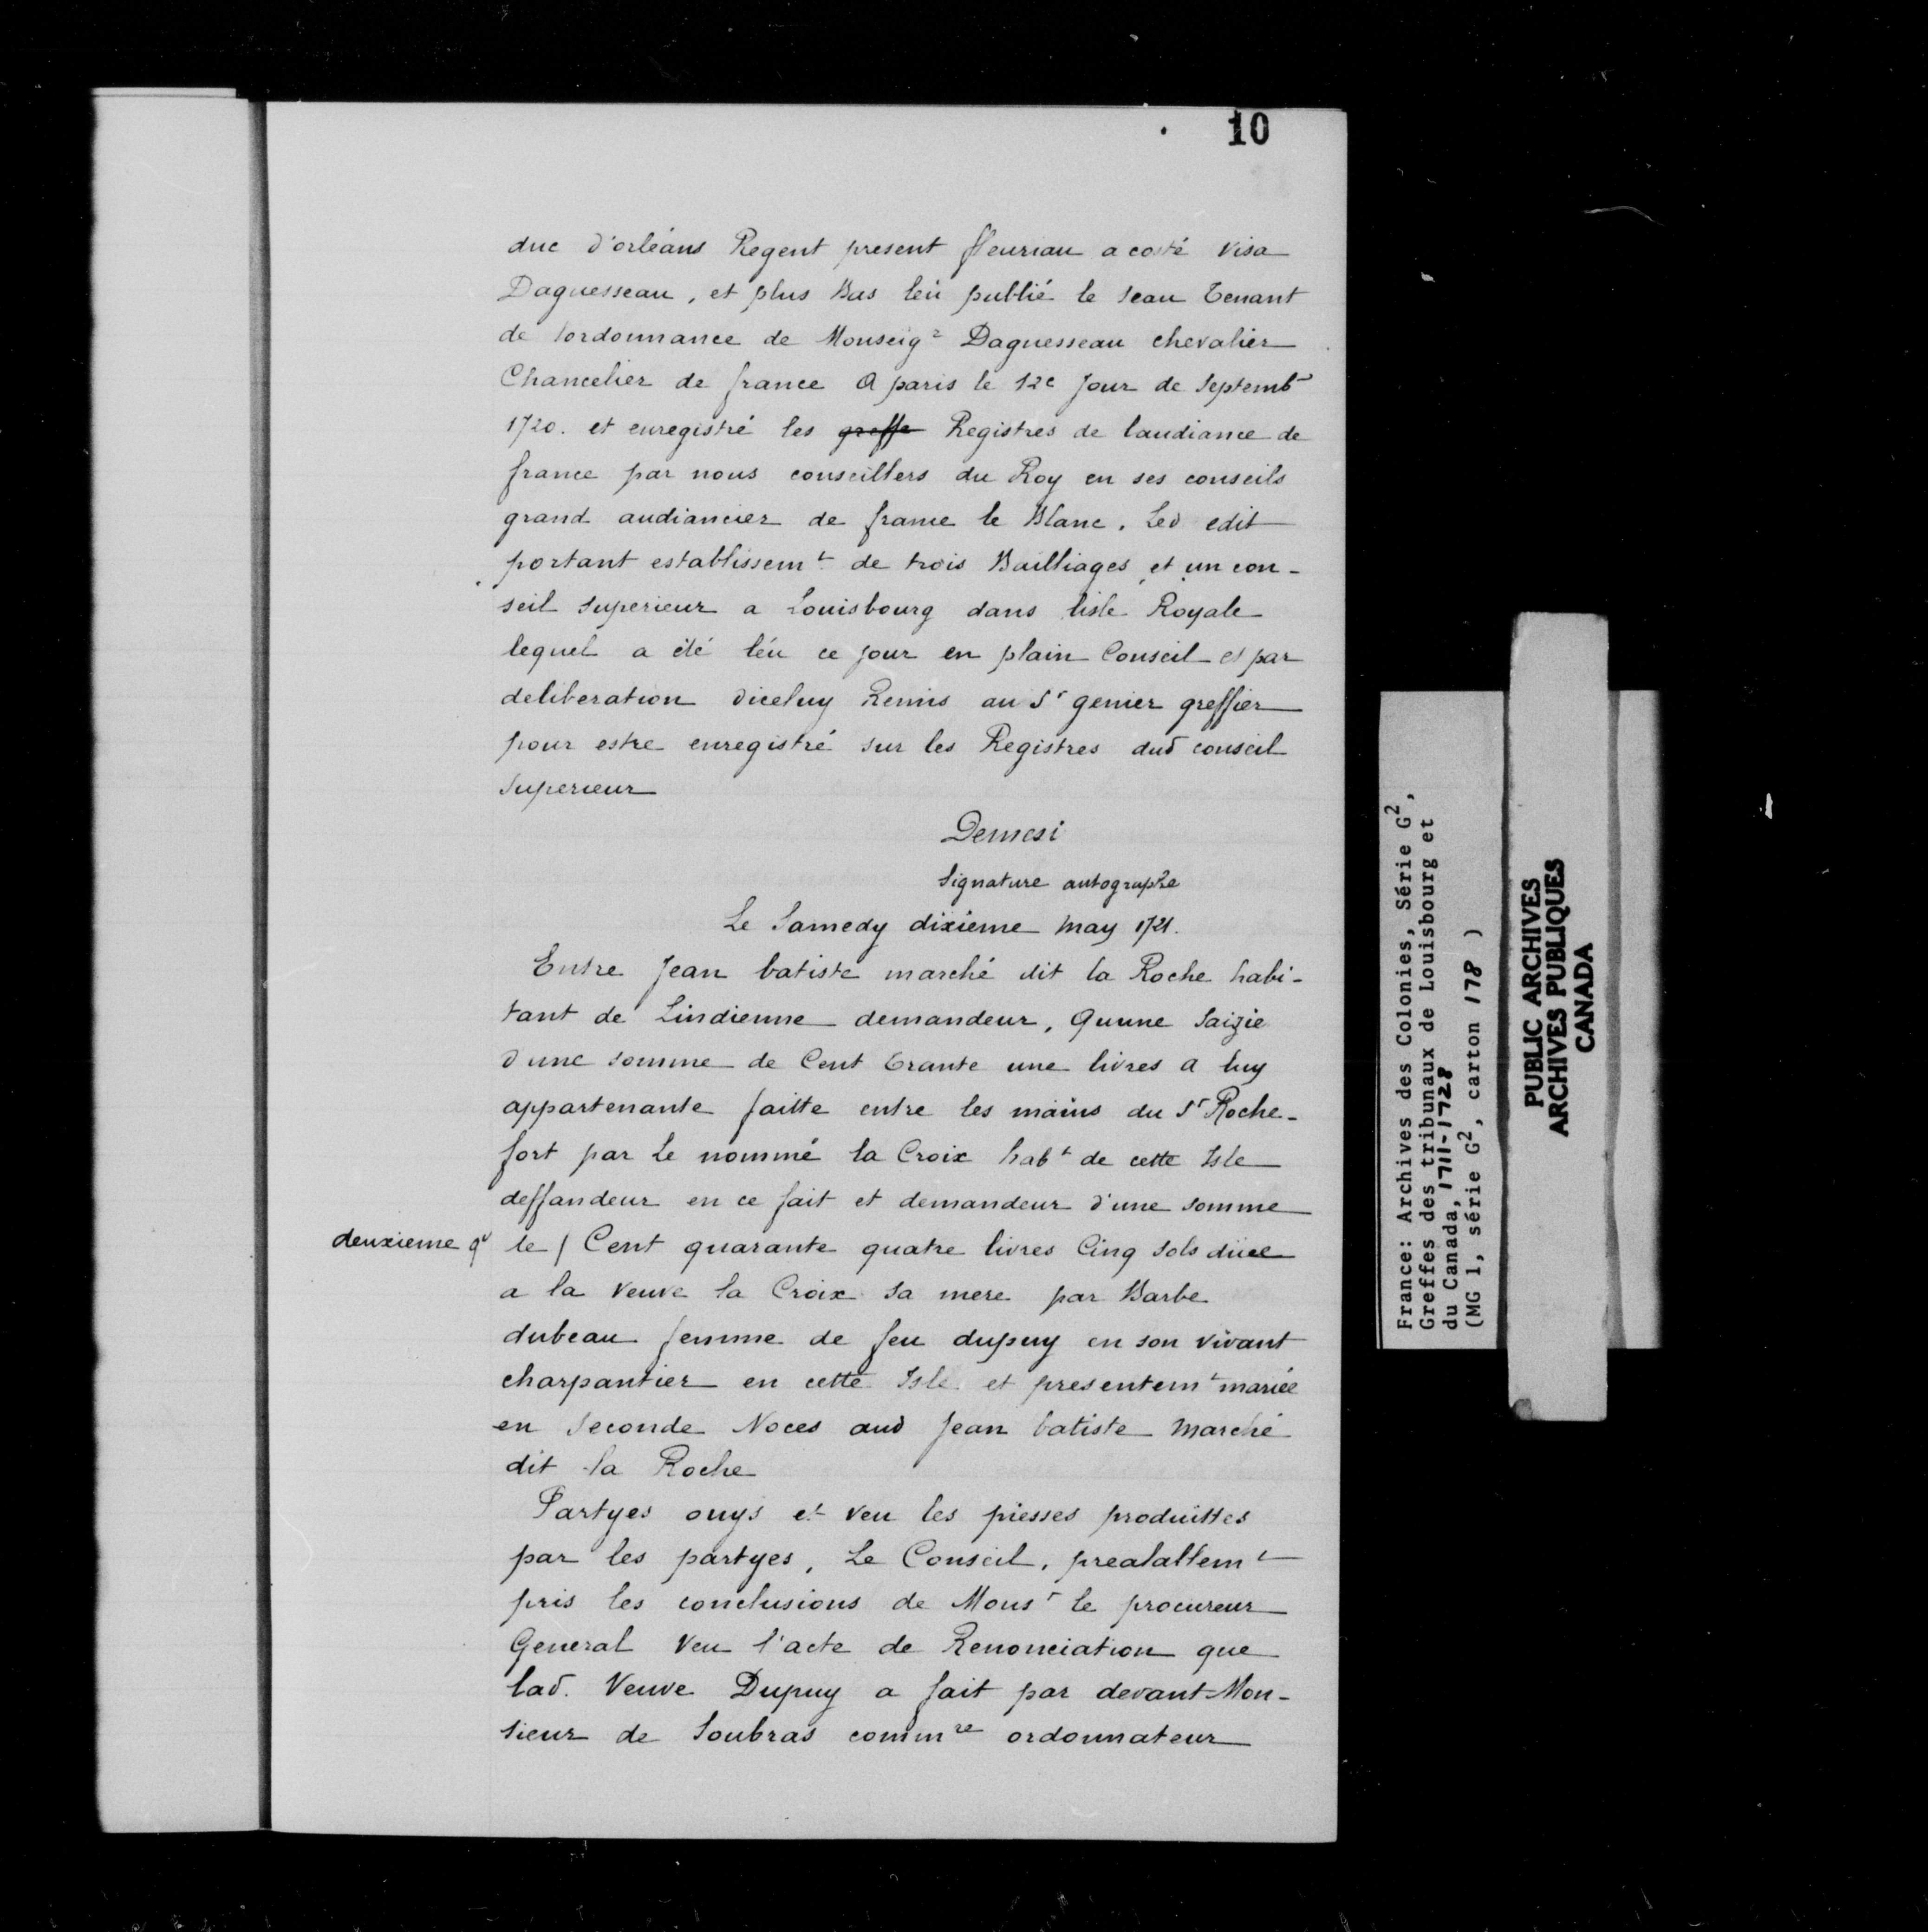 10
duc d'orléans Regent present ffleuriau a costé visa
Daguesseau, et plus Bas leü publié le seau Tenant
de lordonnance de Monseigr Daguesseau chevalier
Chancelier de france A paris le 12e Jour de Septembr
1720. et enregistré les greffe Registres de laudiance de
france par nous conseillers du Roy en ses conseils
grand audiancier de france le Blanc. Led edit
portant establissemt de trois Bailliages et un con-
seil superieur a Louisbourg dans lisle Royale
lequel a été léu ce jour en plain Conseil et par
deliberation diceluy Remis au Sr genier greffier
pour estre enregistré sur les Registres dud conseil
superieur
Demesi
Signature autographe
Le Samedy dixieme may 1721.
Entre Jean batiste marché dit la Roche habi-
tant de Lindienne demandeur, Quune Saizie
d'une somme de Cent trante une livres a luy
appartenante faitte entre les mains du Sr Roche-
fort par Le nommé la Croix habt de cette Isle
deffandeur en ce fait et demandeur d'une somme
deuxieme qr le / Cent quarante quatre livres Cinq sols düee
a la veuve la Croix sa mere par Barbe
dubeau femme de feu dupuy en son vivant
charpantier en cette Isle et presentemt mariée
en seconde Noces aud Jean batiste marché
dit la Roche
Partyes ouys et veu les piesses produittes
par les partyes, Le Conseil, prealallemt
pris les conclusions de Monsr le procureur
General veu l'acte de Renonciation que
lad. Veuve Dupuy a fait par devant Mon-
sieur de Soubras commre ordonnateur
France: Archives des Colonies, Série G2,
Greffes des tribunaux de Louisbourg et
du Canada, 1711-1728
(MG 1, série G2, carton 178 )
PUBLIC ARCHIVES
ARCHIVES PUBLIQUES
CANADA